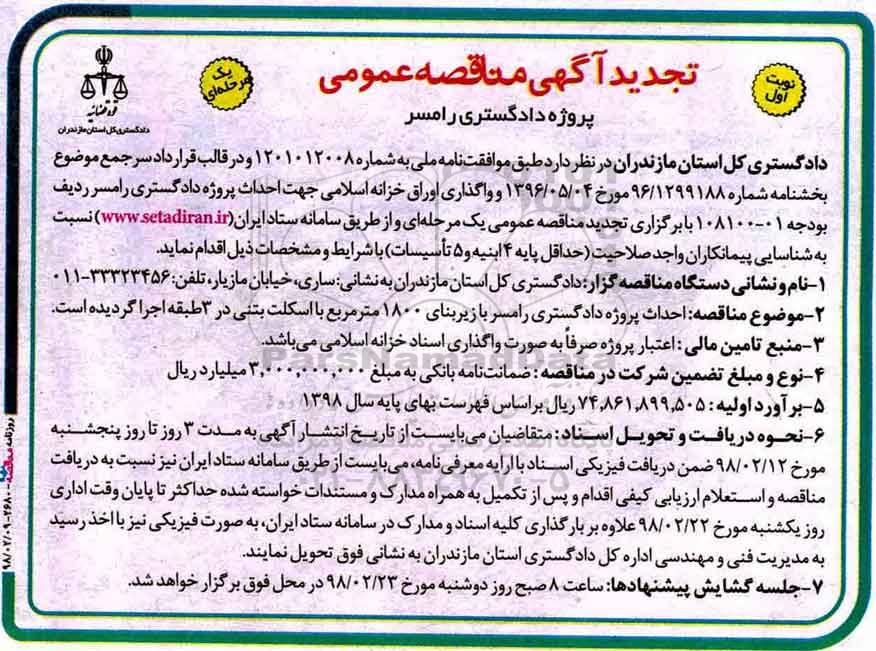 تجدید آگهی مناقصه عمومی
پروژه دادگستری رامسر
نوبت اول
یک مرحله‌ای
قوه قضائیه
دادگستری کل استان مازندران
دادگستری کل استان مازندران در نظر دارد طبق موافقت‌نامه ملی به شماره ۱۲۰۱۰۱۲۰۰۸ و در قالب قرارداد سرجمع موضوع
بخشنامه شماره ۹۶/۱۲۹۹۱۸۸ مورخ ۱۳۹۶/۰۵/۰۴ و واگذاری اوراق خزانه اسلامی جهت احداث پروژه دادگستری رامسر ردیف
بودجه ۰۱-۱۰۸۱۰۰ با برگزاری تجدید مناقصه عمومی یک مرحله‌ای و از طریق سامانه ستاد ایران (www.setadiran.ir) نسبت
به شناسایی پیمانکاران واجد صلاحیت (حداقل پایه ۴ ابنیه و ۵ تأسیسات) با شرایط و مشخصات ذیل اقدام نماید.
۱-نام و نشانی دستگاه مناقصه گزار: دادگستری کل استان مازندران به نشانی: ساری، خیابان مازیار، تلفن: ۳۳۳۲۳۴۵۶-۰۱۱
۲-موضوع مناقصه: احداث پروژه دادگستری رامسر با زیربنای ۱۸۰۰ مترمربع با اسکلت بتنی در ۳طبقه اجرا گردیده است.
۳-منبع تامین مالی: اعتبار پروژه صرفاً به صورت واگذاری اسناد خزانه اسلامی می‌باشد.
۴-نوع و مبلغ تضمین شرکت در مناقصه: ضمانت‌نامه بانکی به مبلغ ۳,۰۰۰,۰۰۰,۰۰۰ میلیارد ریال
۵-برآورد اولیه: ۷۴,۸۶۱,۸۹۹,۵۰۵ ریال براساس فهرست بهای پایه سال ۱۳۹۸
۶-نحوه دریافت و تحویل اسناد: متقاضیان می‌بایست از تاریخ انتشار آگهی به مدت ۳ روز تا روز پنجشنبه
مورخ ۹۸/۰۲/۱۲ ضمن دریافت فیزیکی اسناد با ارایه معرفی نامه، می‌بایست از طریق سامانه ستاد ایران نیز نسبت به دریافت
مناقصه و استعلام ارزیابی کیفی اقدام و پس از تکمیل به همراه مدارک و مستندات خواسته شده حداکثر تا پایان وقت اداری
روز یکشنبه مورخ ۹۸/۰۲/۲۲ علاوه بر بارگذاری کلیه اسناد و مدارک در سامانه ستاد ایران، به صورت فیزیکی نیز با اخذ رسید
به مدیریت فنی و مهندسی اداره کل دادگستری استان مازندران به نشانی فوق تحویل نمایند.
۷-جلسه گشایش پیشنهادها: ساعت ۸ صبح روز دوشنبه مورخ ۹۸/۰۲/۲۳ در محل فوق برگزار خواهد شد.
روزنامه مناقصه ۲۶۸۰-۹۸/۰۲/۰۹
ParsNamadData